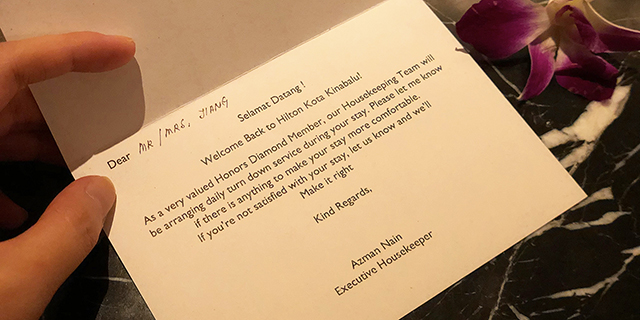 Dear MR / MRS, JIANG
Selamat Datang !
Welcome Back to Hilton Kota Kinabalu!
As a very valued Honors Diamond Member, our Housekeeping Team will
be arranging daily turn down service during your stay. Please let me know
if there is anything to make your stay more comfortable.
If you're not satisfied with your stay, let us know and we'll
Make it right
Kind Regards,
Azman Nain
Executive Housekeeper